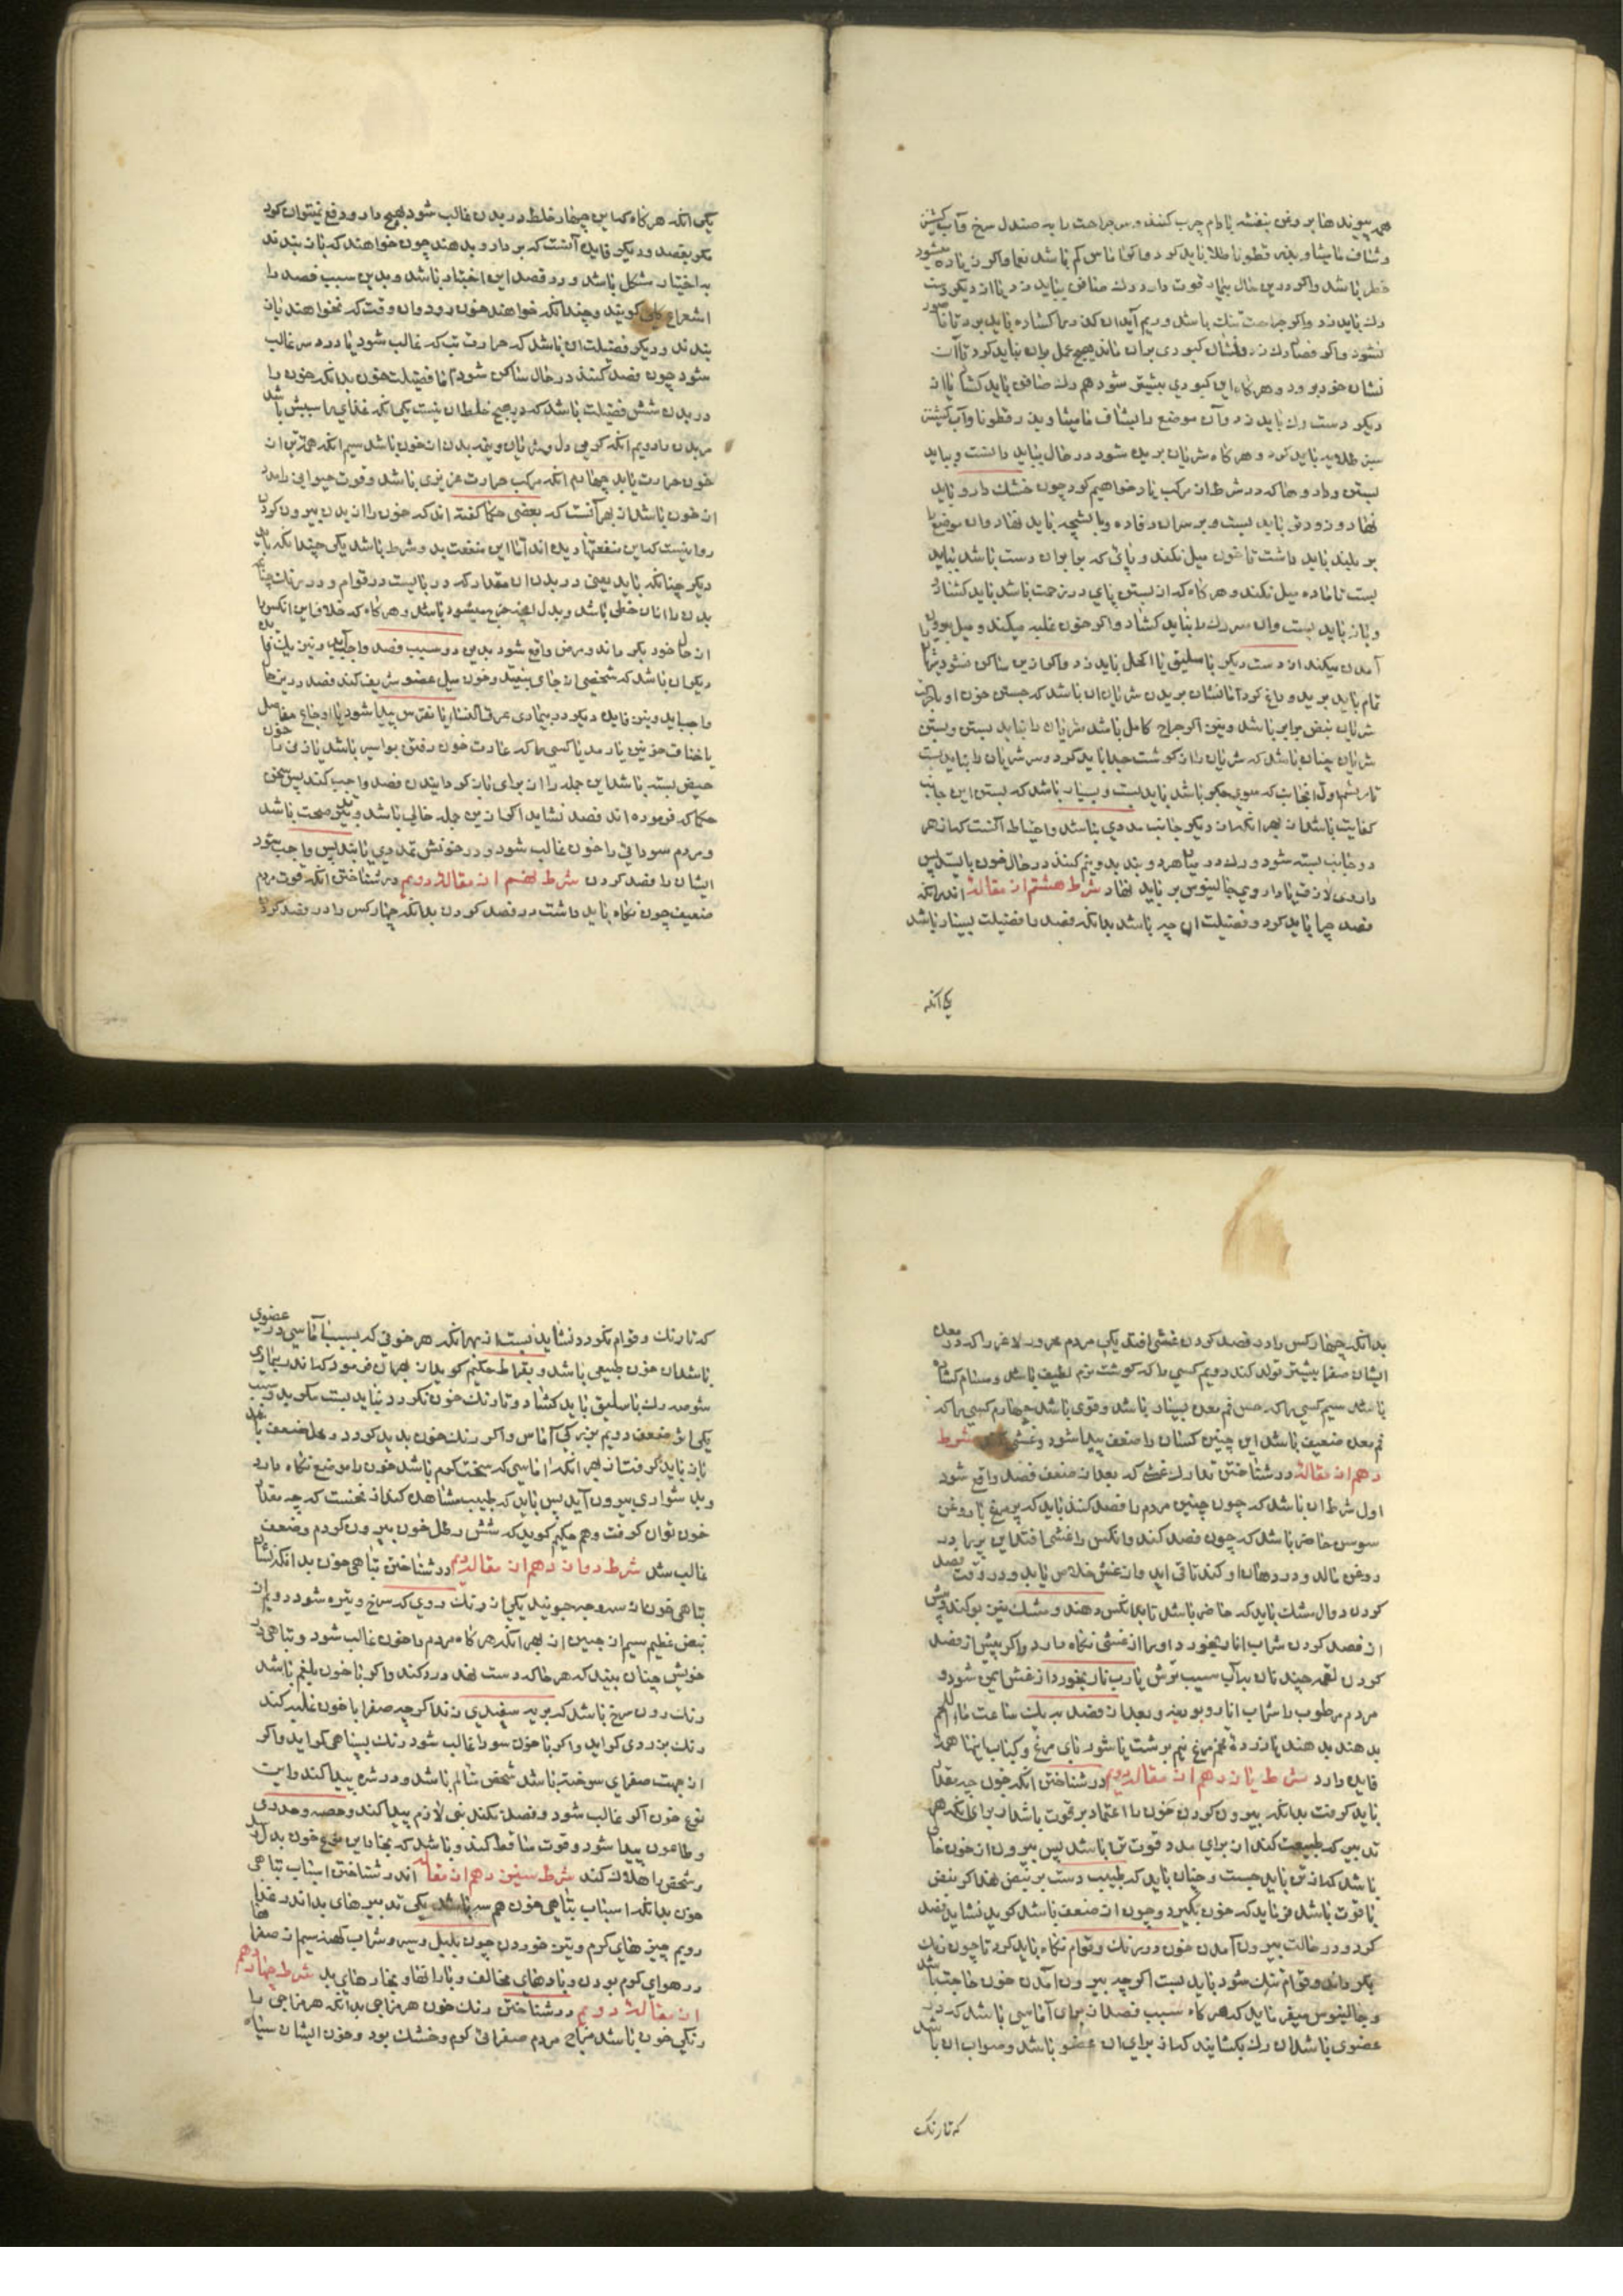 همه پیوندها بروغن بنفشه بادام چرب کنند و سر جراحت را به صندل سرخ و آب کشنیز
و شیاف مامیثا و بذر قطونا طلا باید کرد و اکر اماس کم باشد نعما و اکر زیاده میشود
خطر باشد و اکر درین حال بیمار قوت دارد رک صافن بباید زد یا از دیکر دست
رک باید زد و اکر جراحت تنک باشد و ریم آید ان کذر را کشاده باید کرد تا ناصور
نشود و اکر فصاد رک زد و نشان کبودی بران ماند هیچ عمل بران نباید کرد تا آن
نشان خود برود و هرکاه این کبودی بیشتر شود هم رک صافن باید کشاد یا از
دیکر دست رک باید زد و آن موضع را بشیاف مامیثا و بذر قطونا و آب کشنیز
سبز طلایه باید کرد و هرکاه شریان بریده شود در حال بباید دانست و بباید
بستن و دارو ها که در شرط ان مرکب یاد خواهیم کرد چون خشک دارو باید
نهاد و زودتر باید بست و بر سران رفاده و پارچه باید نهاد و ان موضع را
بر بلند باید داشت تا خون میل نکند و پائی که برابر ان دست باشد بباید
بست تا ماده میل نکند و هرکاه که از بستن پای در زحمت باشد باید کشاد
و باز باید بست و ان سر رک را بباید کشاد و اکر خون غلبه میکند و میل بیرون
آمدن میکند از دست دیکر باسلیق یا اکحل باید زد و اکر ازین ساکن نشود شریان
تمام باید برید و داغ کرد اما نشان بریدن شریان ان باشد که جستن خون او با حرکت
شریان نبض برابر باشد و نیز اکر جراح کامل باشد شریان را بباید بستن و بستن
شریان چنان باشد که شریان را از کوشت جدا باید کرد و سر شریان را بباید بست
تا بریشم اول انجانب که سوی جکر باشد باید بست و بسیار باشد که بستن این جانب
کفایت باشد از بهر انکه از دیکر جانب مددی نباشد و احتیاط آنست که از هر
دو جانب بسته شود و رک در میان هر دو بند بدونیم کنند در حال خون بایستد پس
داروی لازق یا داروی جالینوس بر باید نهاد شرط هشتم از مقالة اندرانکه
فصد چرا باید کرد و فضیلت ان چه باشد بدانکه فصد را فضیلت بسیار باشد
یکی آنکه
یکی انکه هرکاه که این چهار خلط در بدن غالب شود بهیچ دارو دفع نمیتوان کرد
مکر بفصد و دیکر فایده آنست که بر دارو بدهند چون خواهند که باز بندند
به اختیار مشکل باشد و در فصد این اختیار باشد و بدین سبب فصد را
استفراغ کلی کویند و چندانکه خواهند خون رود و ان وقت که نخواهند باز
بندند و دیکر فضیلت ان باشد که حرارت تب که غالب شود یا درد سر غالب
شود چون فصد کنند در حال ساکن شود اما فضیلت خون بدانکه خون را
در بدن شش فضیلت باشد که دیهیچ خلط ان نیست یکی انکه غذای را سبیش باشد
مر بدن را دویم انکه کرمی دل و شریان و بقیه بدن از خون باشد سیم انکه همه تن از
خون حرارت یابد چهارم انکه مرکب حرارت غریزی باشد و قوت حیوانی را مدد
از خون باشد از بهر آنست که بعضی حکما کفته اند که خون را از بدن بیرون کردن
روا نیست که این منفعتها دیده اند اما این منفعت بدو شرط باشد یکی چندانکه باید
دیکر چنانکه باید یعنی در بدن ان مقدار که دربایست در قوام و در رنک چنانکه
بدن را از ان خطی باشد و بدل انچه خرج میشود باشد و هرکاه که خلاف این انکس را
از حال خود بکر داند و مرض واقع شود بدین دو سبب فصد واجب آید و نیز یک فایده
دیکر ان باشد که شخصی از جای بیفتد و خون میل عضو شریف کند فصد درین حال
واجب آید و نیز فایده دیکر در بیماری عرق النسا یا نقرس پیدا شود یا اوجاع مفاصل
یا خناق خونین یا رمد یا کسی را که عادت خون رفتن بواسیر باشد یا زنی را خون
حیض بسته باشد این جمله را از برای باز کردانیدن فصد واجب کند پس سخن
حکما که فرموده اند فصد نشاید اکر ازین جمله خالی باشد و تن صحت باشد
و مردم سودائی را خون غالب شود و در خونش تمددی یابند پس واجب شود
ایشان را فصد کردن شرط نهم از مقالة دویم در شناختن انکه قوت مردم
ضعیف چون نکاه باید داشت در فصد کردن بدانکه چهار کس را در فصد کردن
بدانکه چهار کس را در فصد کردن غشی افتد یکی مردم محرور لاغر را که در معده
ایشان صفرا بیشتر تولد کند دویم کسی را که کوشت نرم لطیف باشد و مسام کشاده
باشد سیم کسی را که حس فم معده بسیار باشد و قوی باشد چهارم کسی را که
فم معده ضعیف باشد این چنین کسان را ضعف پیدا شود و غشی شرط
دهم از مقالة در شناختن تدارک غشی که بعد از ضعف فصد واقع شود
اول شرط ان باشد که چون چنین مردم را فصد کنند باید که پر مرغ با روغن
سوسن حاضر باشد که چون فصد کنند و انکس را غشی افتد این پر را در
روغن مالد و در دهان او کند تا قی اید و از غش خلاص یابد و در وقت فصد
کردن دوال مشک باید که حاضر باشد تا بدانکس دهند و مشک نیز بو کند و پیش
از فصد کردن شراب انار بخورد او را از غشی نکاه دارد و اکر پیش از فصد
کردن لقمه چند نان به آب سیب ترش یا رب نار بخورد از غش ایمن شود و
مردم مرطوب را شراب انار و بودینه و بعد از فصد به یک ساعت ماء اللحم
بدهند بدهند یا زرده تخم مرغ نیم برشت یا شوربای مرغ و کباب اینها همه
فایده دارد شرط یازدهم از مقاله دویم در شناختن انکه خون چه مقدار
باید کرفت بدانکه بیرون کردن خون را اعتماد بر قوت باشد از برای انکه هر
تدبیر که طبیعت کند از برای مدد قوت تن باشد پس بیرون از خون خالی
باشد که از تن باید جست و چنان باید که طبیب دست بر نبض نهد اکر نبض
با قوت باشد فرماید که خون بکیرد و چون از ضعف باشد کوید نشاید فصد
کرد و در حالت بیرون آمدن خون در رنک و قوام نکاه باید کرد تا چون رنک
بکرداند و قوام تنک شود باید بست اکرچه بیرون آمدن خون حاجت باشد
و جالینوس میفرماید که هرکاه سبب فصد از برای آماسی باشد که در
عضوی باشد ان رک بکشایند که از برای ان عضو باشد و صواب ان باشد
که تا رنک
که تا رنک و قوام نکردد نشاید بست از بهر انکه هر خونی که بسبب آماسی در عضوی
باشد ان خون طبیعی باشد و بقراط حکیم کوید از بهر ان فرمود که اندر بیماری
شوصه رک باسلیق باید کشاد و تا رنک خون نکردد نباید بست مکر بدو سبب
یکی از ضعف دویم بزرکی آماس و اکر رنک خون بدید کردد و محل ضعف باشد
باز باید کرفت از بهر انکه اماسی که سخت کرم باشد خون را موضع نکاه دارد
و بدشواری بیرون آید پس باید که طبیب مشاهده کند از نخست که چه مقدار
خون توان کرفت و هم حکیم کوید که شش رطل خون بیرون کردم و ضعف
غالب شد شرط دوازدهم از مقالة دویم در شناختن تباهی خون بدانکه نشان
تباهی خون از سه وجه جویند یکی از رنک روی که سرخ و تیره شود دویم از
نبض عظیم سیم از جبین از بهر انکه هرکاه مردم را خون غالب شود و تباهی در
خویش چنان بیند که هر جا که دست نهد درد کند و اکر با خون بلغم باشد
رنک رون سرخ باشد که به سفیدی زند اکرچه صفرا با خون غلبه کند
رنک بزردی کراید و اکر با خون سودا غالب شود رنک بسیاهی کراید و اکر
از جهت صفرای سوخته باشد شخص سالم باشد و در شره پیدا کند و این
نوع خون اکر غالب شود و فصد نکند تبی لازم پیدا کند و حصبه و جدری
و طاعون پیدا شود و قوت ساقط کند و باشد که بخار این خون بدل رسد
و شخص را هلاک کند شرط سیزدهم از مقاله اندر شناختن اسباب تباهی
خون بدانکه اسباب تباهی خون هم سه باشد یکی تدبیرهای بد اندر غذاها
دویم چیزهای کرم و تیز خوردن چون پلپل و سیر و شراب کهنه سیم از صفرا
در هوای کرم بودن و بادهای مخالف و بخارهای بد شرط چهاردهم
از مقالة دویم در شناختن رنک خون هر مزاجی بدانکه هر مزاجی را
رنکی خون باشد مزاج مردم صفرائی کرم و خشک بود و خون ایشان سیاه